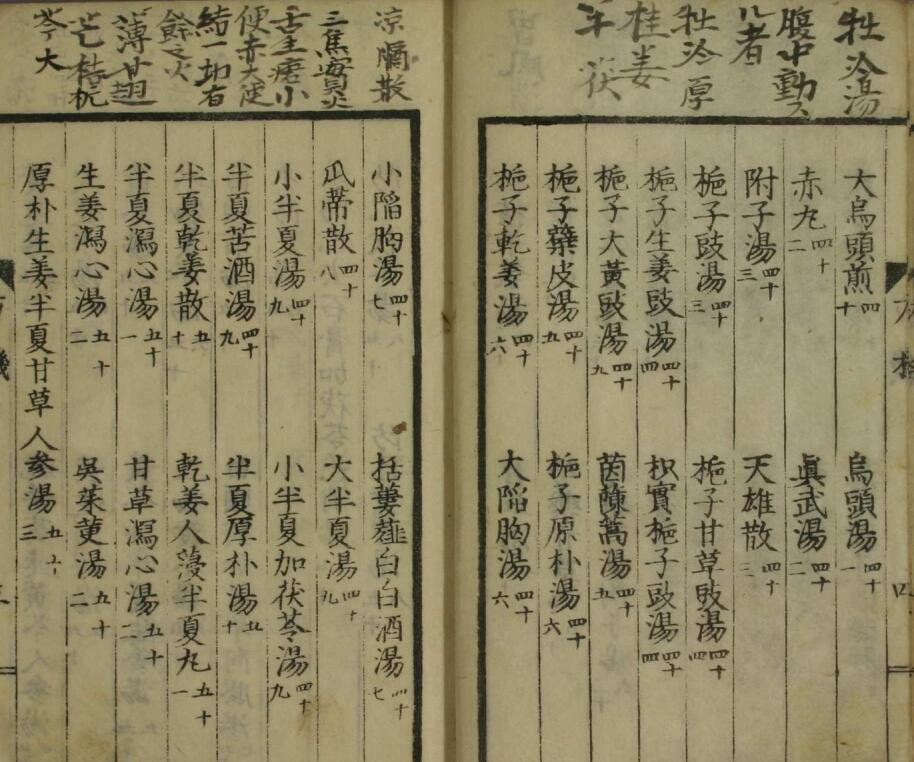 牡泠湯
腹中動ス
ル者
牡泠厚
桂姜
半茯
大烏頭煎 四十
烏頭湯 四十一
赤丸 四十二
眞武湯 四十二
附子湯 四十三
天雄散 四十三
梔子豉湯 四十三
梔子甘草豉湯 四十四
梔子生姜豉湯 四十四
枳實梔子豉湯 四十四
梔子大黃豉湯 四十九
茵蔯蒿湯 四十五
梔子蘗皮湯 四十五
梔子厚朴湯 四十六
梔子乾姜湯 四十六
大陷胸湯 四十六
四
涼膈散
三焦實火
舌生瘡小
便赤大便
結一切有
餘之火
薄甘翅
芒桔梔
芩大
小陷胸湯 四十七
括蔞薤白白酒湯 四十七
瓜蒂散 四十八
大半夏湯 四十九
小半夏湯 四十九
小半夏加茯苓湯 四十九
半夏苦酒湯 四十九
半夏厚朴湯 五十
半夏乾姜散 五十
乾姜人蓡半夏丸 五十一
半夏瀉心湯 五十一
甘草瀉心湯 五十二
生姜瀉心湯 五十二
吳茱萸湯 五十二
厚朴生姜半夏甘草人参湯 五十三